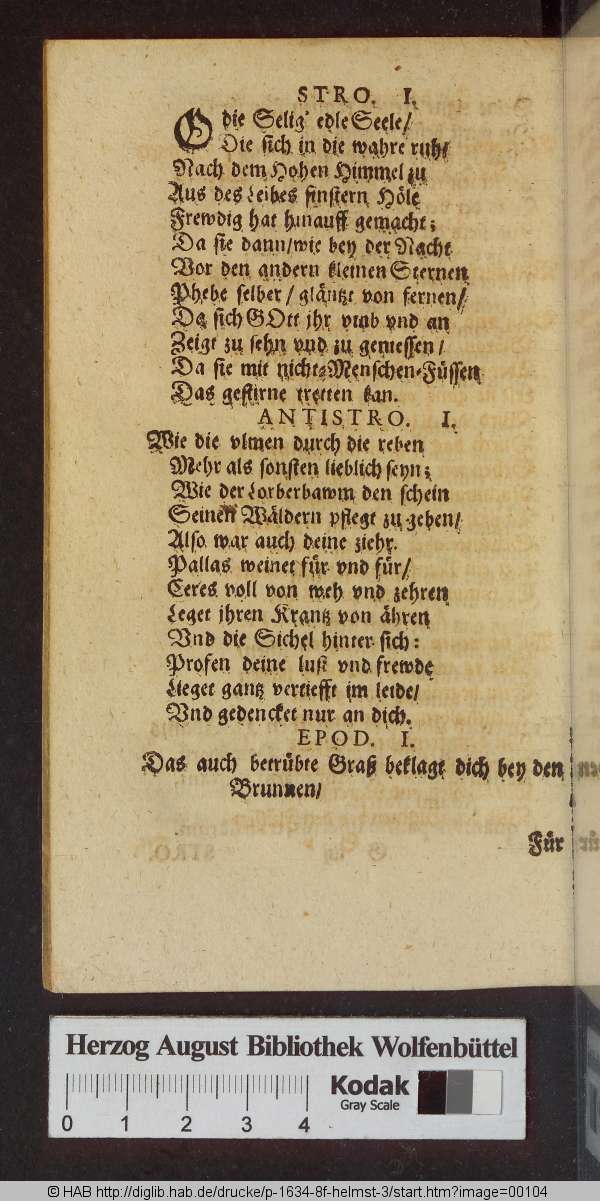 STRO. I.
O die Selig' edle Seele/
Die sich in die wahre ruh/
Nach dem Hohen Himmel zu
Aus des Leibes finstern Höle
Frewdig hat hinauff gemacht;
Da sie dann/wie bey der Nacht
Vor den andern kleinen Sternen
Phebe selber/ gläntzt von fernen/
Da sich GOtt jhr vmb vnd an
Zeigt zu sehn vnd zu geniessen/
Da sie mit nicht-Menschen-Füssen
Das gestirne tretten kan.
ANTISTRO. I.
Wie die vlmen durch die reben
Mehr als sonsten lieblich seyn;
Wie der Lorberbawm den schein
Seinen Wäldern pflegt zu geben/
Also war auch deine ziehr.
Pallas weinet für vnd für/
Ceres voll von weh vnd zehren
Leget jhren Krantz von ähren
Vnd die Sichel hinter sich:
Profen deine lust vnd frewde
Lieget gantz vertiefft im leide/
Vnd gedencket nur an dich.
EPOD. I.
Das auch betrübte Graß beklagt dich bey den
Brunnen/
Für
Herzog August Bibliothek Wolfenbüttel
Kodak
Gray Scale
0 1 2 3 4
© HAB http://diglib.hab.de/drucke/p-1634-8f-helmst-3/start.htm?image=00104